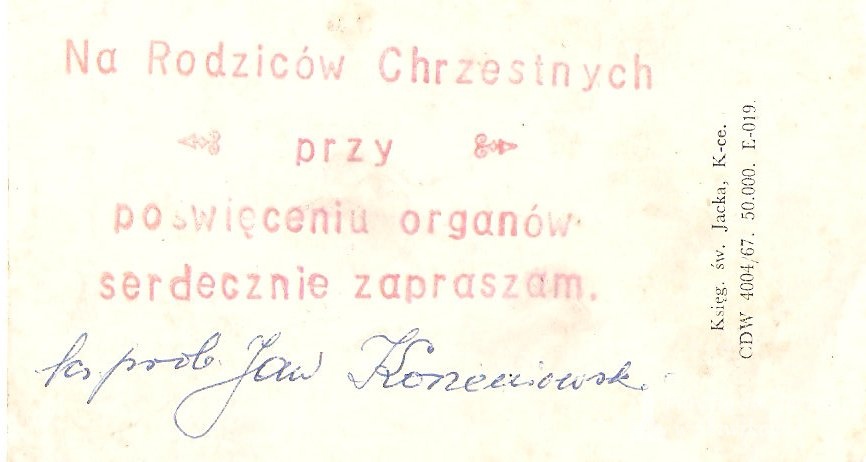 Na Rodziców Chrzestnych
przy
poświęceniu organów
serdecznie zapraszam.
ks. prob. Jan Korzeniowski
Księg. św. Jacka, K-ce.
CDW 4004/67. 50.000. E-019.